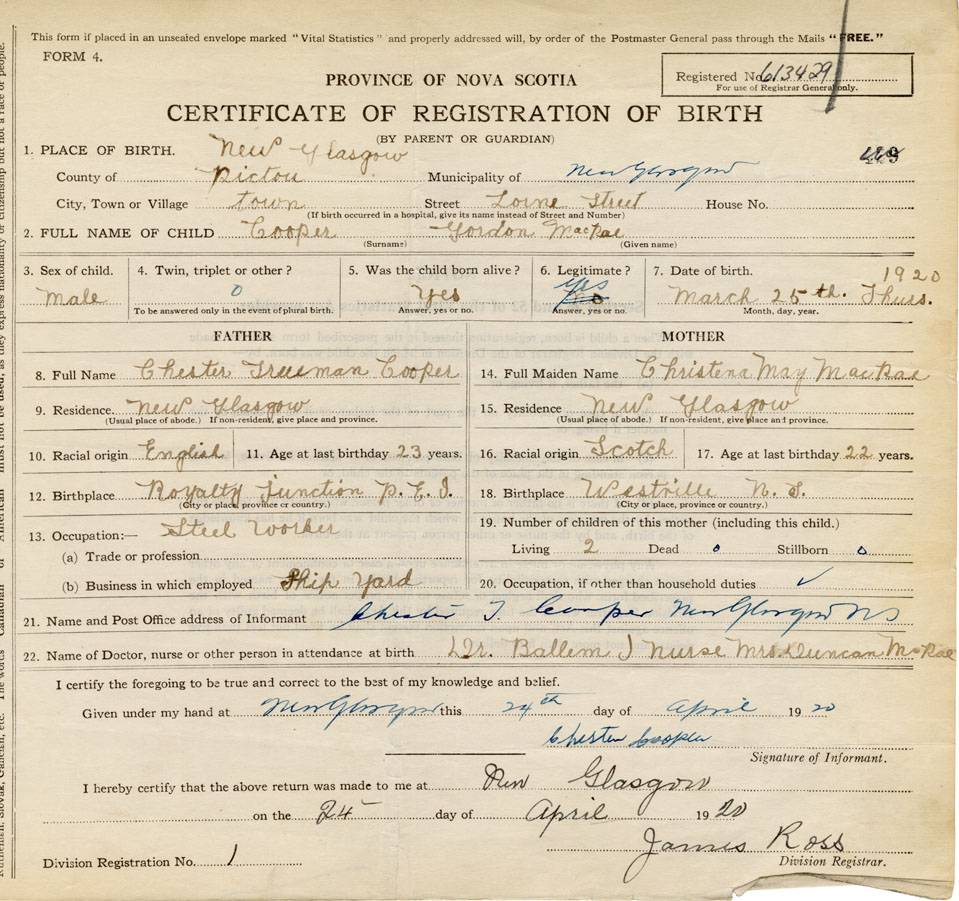 This form if placed in an unsealed envelope marked "Vital Statistics" and properly addressed will, by order of the Postmaster General pass through the Mails "FREE."
FORM 4.
PROVINCE OF NOVA SCOTIA
Registered No. 613429
For use of Registrar General only.
CERTIFICATE OF REGISTRATION OF BIRTH
(BY PARENT OR GUARDIAN)
1. PLACE OF BIRTH. New Glasgow
County of Pictou Municipality of New Glasgow
City, Town or Village town Street Lorne Street House No.
(If birth occurred in a hospital, give its name instead of Street and Number)
2. FULL NAME OF CHILD Cooper Gordon MacRae
(Surname) (Given name)
3. Sex of child. 4. Twin, triplet or other? 5. Was the child born alive? 6. Legitimate? 7. Date of birth. 1920
Male 0 Yes Yes March 25th. Thurs.
To be answered only in the event of plural birth. Answer, yes or no. Answer, yes or no. Month, day, year.
FATHER MOTHER
8. Full Name Chester Freeman Cooper 14. Full Maiden Name Christena May MacRae
9. Residence. New Glasgow 15. Residence New Glasgow
(Usual place of abode.) If non-resident, give place and province. (Usual place of abode.) If non-resident, give place and province.
10. Racial origin English 11. Age at last birthday 23 years. 16. Racial origin Scotch 17. Age at last birthday 22 years.
12. Birthplace Royalty Junction P.E.I. 18. Birthplace Westville N.S.
(City or place, province or country.) (City or place, province or country.)
13. Occupation:— Steel Worker 19. Number of children of this mother (including this child.)
(a) Trade or profession Living 2 Dead 0 Stillborn 0
(b) Business in which employed Ship Yard 20. Occupation, if other than household duties ✓
21. Name and Post Office address of Informant Chester F. Cooper New Glasgow NS
22. Name of Doctor, nurse or other person in attendance at birth Dr. Ballem Nurse Mrs. Duncan McRae
I certify the foregoing to be true and correct to the best of my knowledge and belief.
Given under my hand at New Glasgow this 24th day of April 1920
Chester Cooper
Signature of Informant.
I hereby certify that the above return was made to me at New Glasgow
on the 24 day of April 1920
James Ross
Division Registration No. 1 Division Registrar.